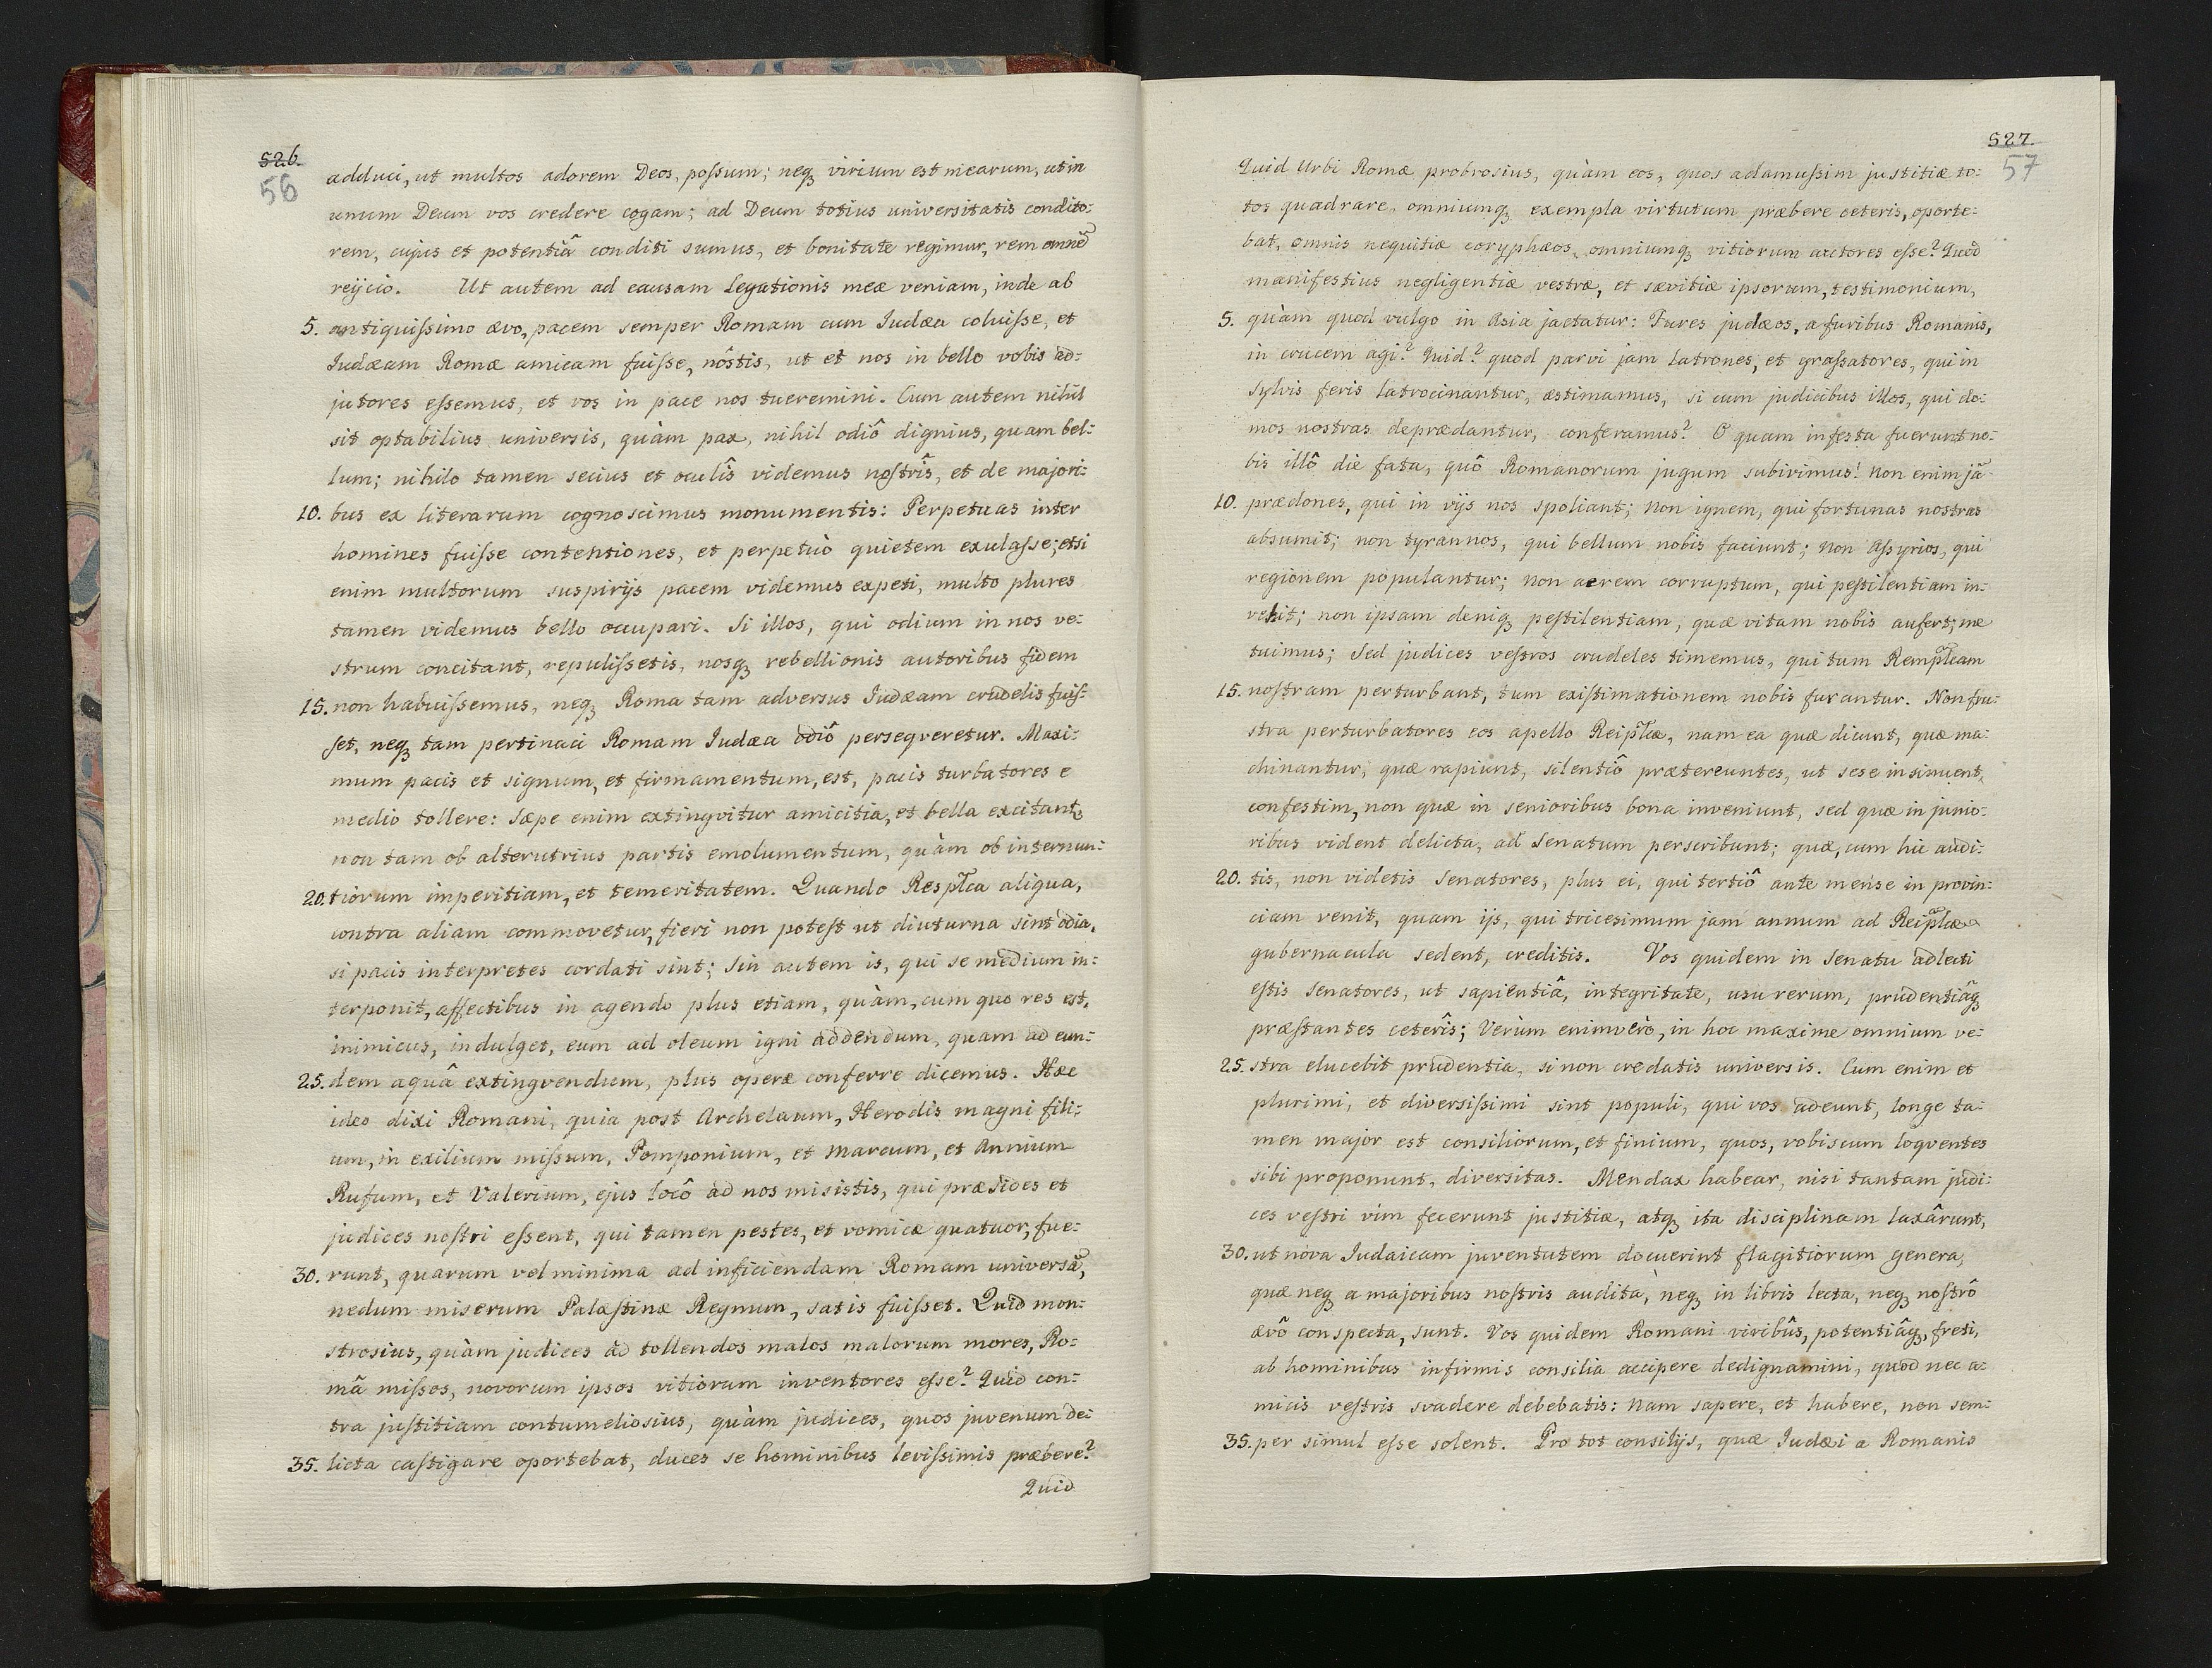 526.
56
adduci, ut multos adorem Deos, poſsum; neq3 virium est mearum, ut in
unum Deum vos credere cogam; ad Deum totius universitatis condito:
rem, cujus et potentiâ conditi sumus, et bonitate regimur, rem omnẽ
reijcio. Ut autem ad causam Legationis meæ veniam, inde ab
5. antiquiſsimo ævo, pacem semper Romam cum Iudæa coluiſse, et
Iudæam Romæ amicam fuiſse, nôstis, ut et nos in bello vobis ad:
jutores eſsemus, et vos in pace nos tueremini. Cum autem nihil
sit optabilius universis, quàm pax, nihil odiô dignius, quam bel:
lum; nihilo tamen secius et oculîs videmus noſtrîs, et de majori:
10. bus ex literarum cognoscimus monumentis: Perpetuas inter
homines fuiſse contentiones, et perpetuò quietem exulaſse; etsi
enim multorum suspirijs pacem videmus expeti, multo plures
tamen videmus bello occupari. Si illos, qui odium in nos ve:
strum concitant, repuliſsetis, nosq3 rebellionis autoribus fidem
15. non habuiſsemus, neq3 Roma tam adversus Iudæam crudelis fuiſ:
ſet, neq3 tam pertinaci Romam Iudæa odiô perseqveretur. Maxi:
mum pacis et signum, et firmamentum, est, pacis turbatores e
medio tollere: Sæpe enim extingvitur amicitia, et bella excitantr
non tam ob alterutrius partis emolumentum, quàm ob internun:
20. tiorum imperitiam, et temeritatem. Quando Resp̃lca aliqua,
contra aliam commovetur, fieri non poteſt ut diuturna sint odia,
si pacis interpretes cordati sint; Sin autem is, qui se medium in:
terponit, affectibus in agendo plus etiam, quàm, cum quo res est,
inimicus, indulget, eum ad oleum igni addendum, quam ad eun:
25. dem aquâ extingvendum, plus operæ conferre dicemus. Hæc
ideo dixi Romani, quia post Archelaum, Herodis magni fili:
um, in exilium miſsum, Pomponium, et Marcum, et Annium
Rufum, et Valerium, ejus locô ad nos misistis, qui præsides et
judices noſtri eſsent, qui tamen pestes, et vomicæ quatuor, fue:
30. runt, quarum vel minima ad inficiendam Romam universã,
nedum miserum Palæſtinæ Regnum, satis fuiſset. Quid mon:
strosius, quàm judices ad tollendos malos malorum mores, Ro:
mâ miſsos, novorum ipsos vitiorum inventores eſse? Quid con:
tra juſtitiam contumeliosius, quàm judices, quos juvenum de:
35. licta caſtigare oportebat, duces se hominibus leviſsimis præbere?
Quid
527.
57
Quid Urbi Romæ probrosius, quàm eos, quos adamuſsim justitiæ to:
tos quadrare, omniumq3 exempla virtutum præbere ceteris, oporte:
bat, omnis nequitiæ coryphæos, omniumq3 vitiorum auctores eſse? Quod
manifestius negligentiæ vestræ, et sævitiæ ipsorum, testimonium,
5. quàm quod vulgo in Asia jactatur: Fures judæos, a furibus Romanis,
in crucem agi? Quid? quod parvi jam latrones, et graſsatores, qui in
sylvis feris latrocinantur, æstimamus, si cum judicibus illos, qui do:
mos nostras deprædantur, conferamus? O quam infeſta fuerunt no:
bis illô die fata, quô Romanorum jugum subivimus! Non enim jã
10. prædones, qui in vijs nos spoliant; non ignem, qui fortunas nostras
absumit; non tyrannos, qui bellum nobis faciunt; non Aſsyrios, qui
regionem populantur; non aerem corruptum, qui peſtilentiam in:
vehit; non ipsam deniq3 peſtilentiam, quæ vitam nobis aufert; me
tuimus; Sed judices veſtros crudeles timemus, qui tum Remp̃lcam
15. noſtram perturbant, tum exiſtimationem nobis furantur. Non fru:
stra perturbatores eos apello Reip̃lcæ, nam ea quæ dicunt, quæ ma:
chinantur, quæ rapiunt, silentiô prætereuntes, ut sese insinuent,
confestim, non quæ in senioribus bona inveniunt, sed quæ in junio:
ribus vident delicta, ad Senatum perscribunt; quæ, cum hic audi:
20. tis, non videtis Senatores, plus ei, qui tertiô ante mense in provin:
ciam venit, quam ijs, qui tricesimum jam annum ad Reip̃lcæ
gubernacula sedent, creditis. Vos quidem in Senatu adlecti
eſtis Senatores, ut sapientiâ, integritate, usu rerum, prudentiâq3
præſtantes ceterîs; Verùm enimverò, in hoc maxime omnium ve:
25. stra elucebit prudentia, si non credatis universis. Cum enim et
plurimi, et diversiſsimi sint populi, qui vos adeunt, longe ta:
men major est consiliorum, et finium, quos, vobiscum loqventes
sibi proponunt, diversitas. Mendax habear, nisi tantam judi:
ces veſtri vim fecerunt justitiæ, atq3 ita disciplinam laxârunt,
30. ut nova Iudaicam juventutem docuerint flagitiorum genera,
quæ neq3 a majoribus noſtris audita, neq3 in libris lecta, neq3 noſtrô
ævô conspecta, sunt. Vos quidem Romani viribûs, potentiâq3, freti,
ab hominibus infirmis consilia accipere dedignamini, quod nec a:
micis veſtris svadere debebatis: Nam sapere, et habere, non sem:
35. per simul eſse solent. Pro tot consilijs, quæ Iudæi a Romanis